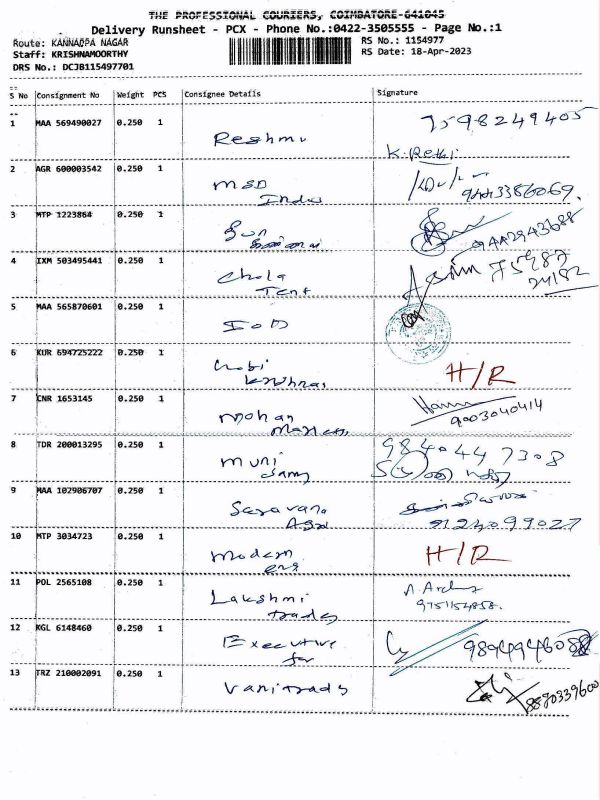 THE PROFESSIONAL COURIERS, COIMBATORE-641045
Delivery Runsheet - PCX - Phone No.:0422-3505555 - Page No.:1
Route: KANNAPPA NAGAR
RS No.: 1154977
Staff: KRISHNAMOORTHY
RS Date: 18-Apr-2023
DRS No.: DCJB115497701
S No Consignment No Weight PCS Consignee Details Signature
1 MAA 569490027 0.250 1 Reshmi 7598249405
K.Rethi
2 AGR 600003542 0.250 1 MSD 9443386069.
India
3 MTP 1223864 0.250 1 9442943688
4 IXM 503495441 0.250 1 Chola 75987
Tent 24182
5 MAA 565870601 0.250 1 IOD
6 KUR 694725222 0.250 1 H/R
7 CNR 1653145 0.250 1 Mohan 9003040414
8 TDR 200013295 0.250 1 Muni 9840447308
Samy
9 MAA 102906707 0.250 1 Saravana
9124099027
10 MTP 3034723 0.250 1 Modern H/R
eng
11 POL 2565108 0.250 1 Lakshmi
trads 9751154858.
12 KGL 6148460 0.250 1 Executive
13 TRZ 210002091 0.250 1 Vanitrads 8880339600